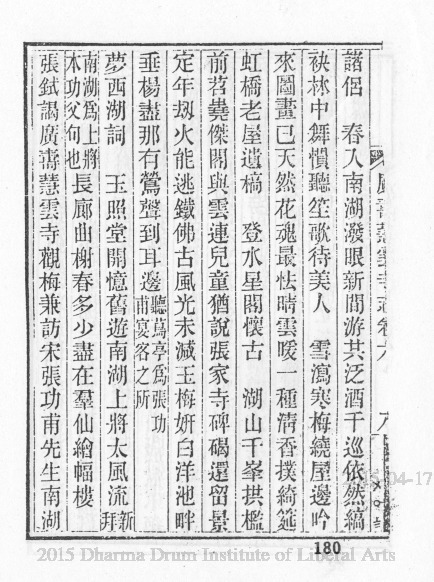 廣壽慧雲寺志卷六　八
諸侶　春入南湖潑眼新閒游共泛酒千巡依然縞
袂林中舞慣聽笙歌待美人　雪瀉寒梅繞屋邊吟
來圖畫已天然花魂最怯晴雲暖一種清香撲綺筵
虹橋老屋遺稿　登水星閣懷古　湖山千峯拱檻
前岧嶤傑閣與雲連兒童猶說張家寺碑碣還留景
定年刼火能逃鐵佛古風光未減玉梅妍白洋池畔
垂楊盡那有鶯聲到耳邊聽鶯亭爲張功甫宴客之所
夢西湖詞　玉照堂開憶舊遊南湖上將太風流新拜
南湖爲上將本功父句也長廊曲榭春多少盡在羣仙繪幅樓
張鉽謁廣壽慧雲寺觀梅兼訪宋張功甫先生南湖
180
2015 Dharma Drum Institute of Liberal Arts